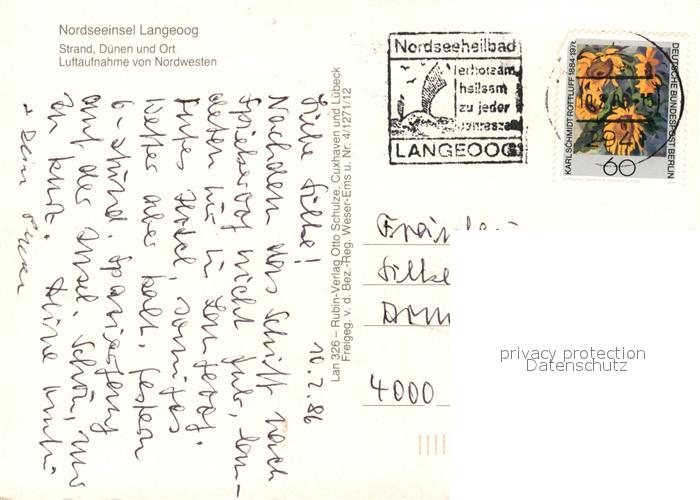 Nordseeinsel Langeoog
Strand, Dünen und Ort
Luftaufnahme von Nordwesten
10.2.86
Liebe Silke!
Nachdem das Schiff nach
Spiekeroog nicht fuhr, lan-
deten wir in Langeoog.
Gutes Hotel, sonniges
Wetter aber kalt. Gestern
6-stünd. Spaziergang
auf der Insel. Schön, nur
zu kurz. Deine
+ Dein
Lan 326 – Rubin-Verlag Otto Schulze, Cuxhaven und Lübeck
Freigeg. v. d. Bez.-Reg. Weser-Ems u. Nr. 4/1271/12
Nordseeheilbad
erholsam
heilsam
zu jeder
Jahreszeit
LANGEOOG
KARL SCHMIDT-ROTTLUFF 1884-1976
DEUTSCHE BUNDESPOST BERLIN
60
Silke
4000
privacy protection
Datenschutz